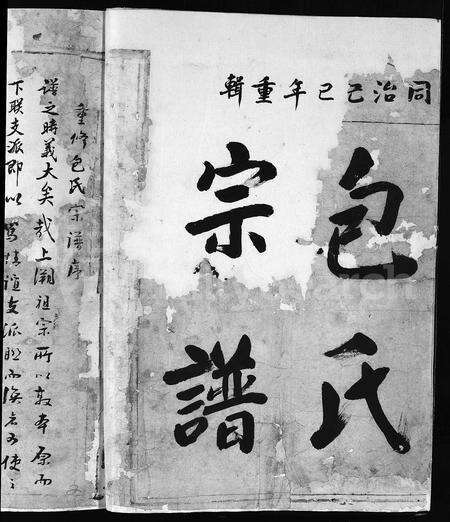 同治己巳年重輯
包氏
宗譜
重修包氏宗譜序
譜之時義大矣哉上溯祖宗所以敦本原而
下聯支派即以篤情誼支派